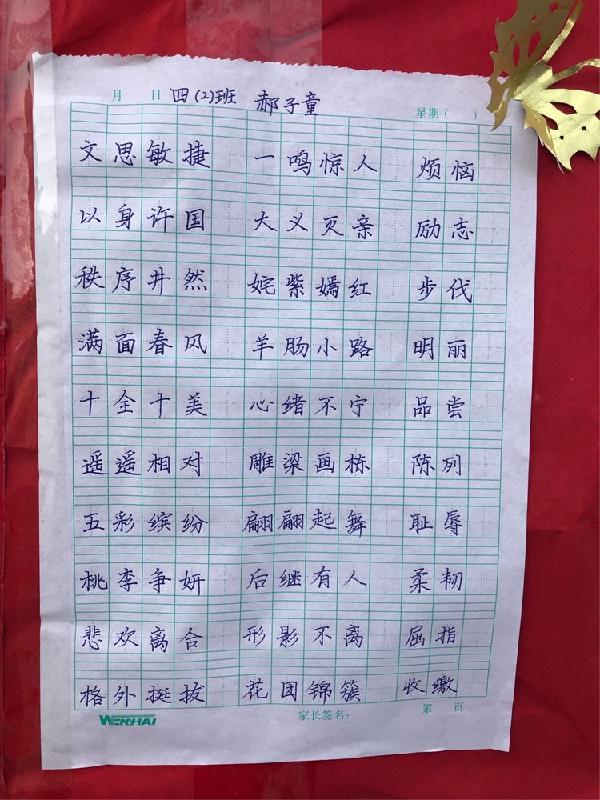 月 日 四(2)班 郝子童 星期( )
文思敏捷 一鸣惊人 烦恼
以身许国 大义灭亲 励志
秩序井然 姹紫嫣红 步伐
满面春风 羊肠小路 明丽
十全十美 心绪不宁 品尝
遥遥相对 雕梁画栋 陈列
五彩缤纷 翩翩起舞 耻辱
桃李争妍 后继有人 柔韧
悲欢离合 形影不离 屈指
格外挺拔 花团锦簇 收缴
WENHAI 家长签名: 第 页